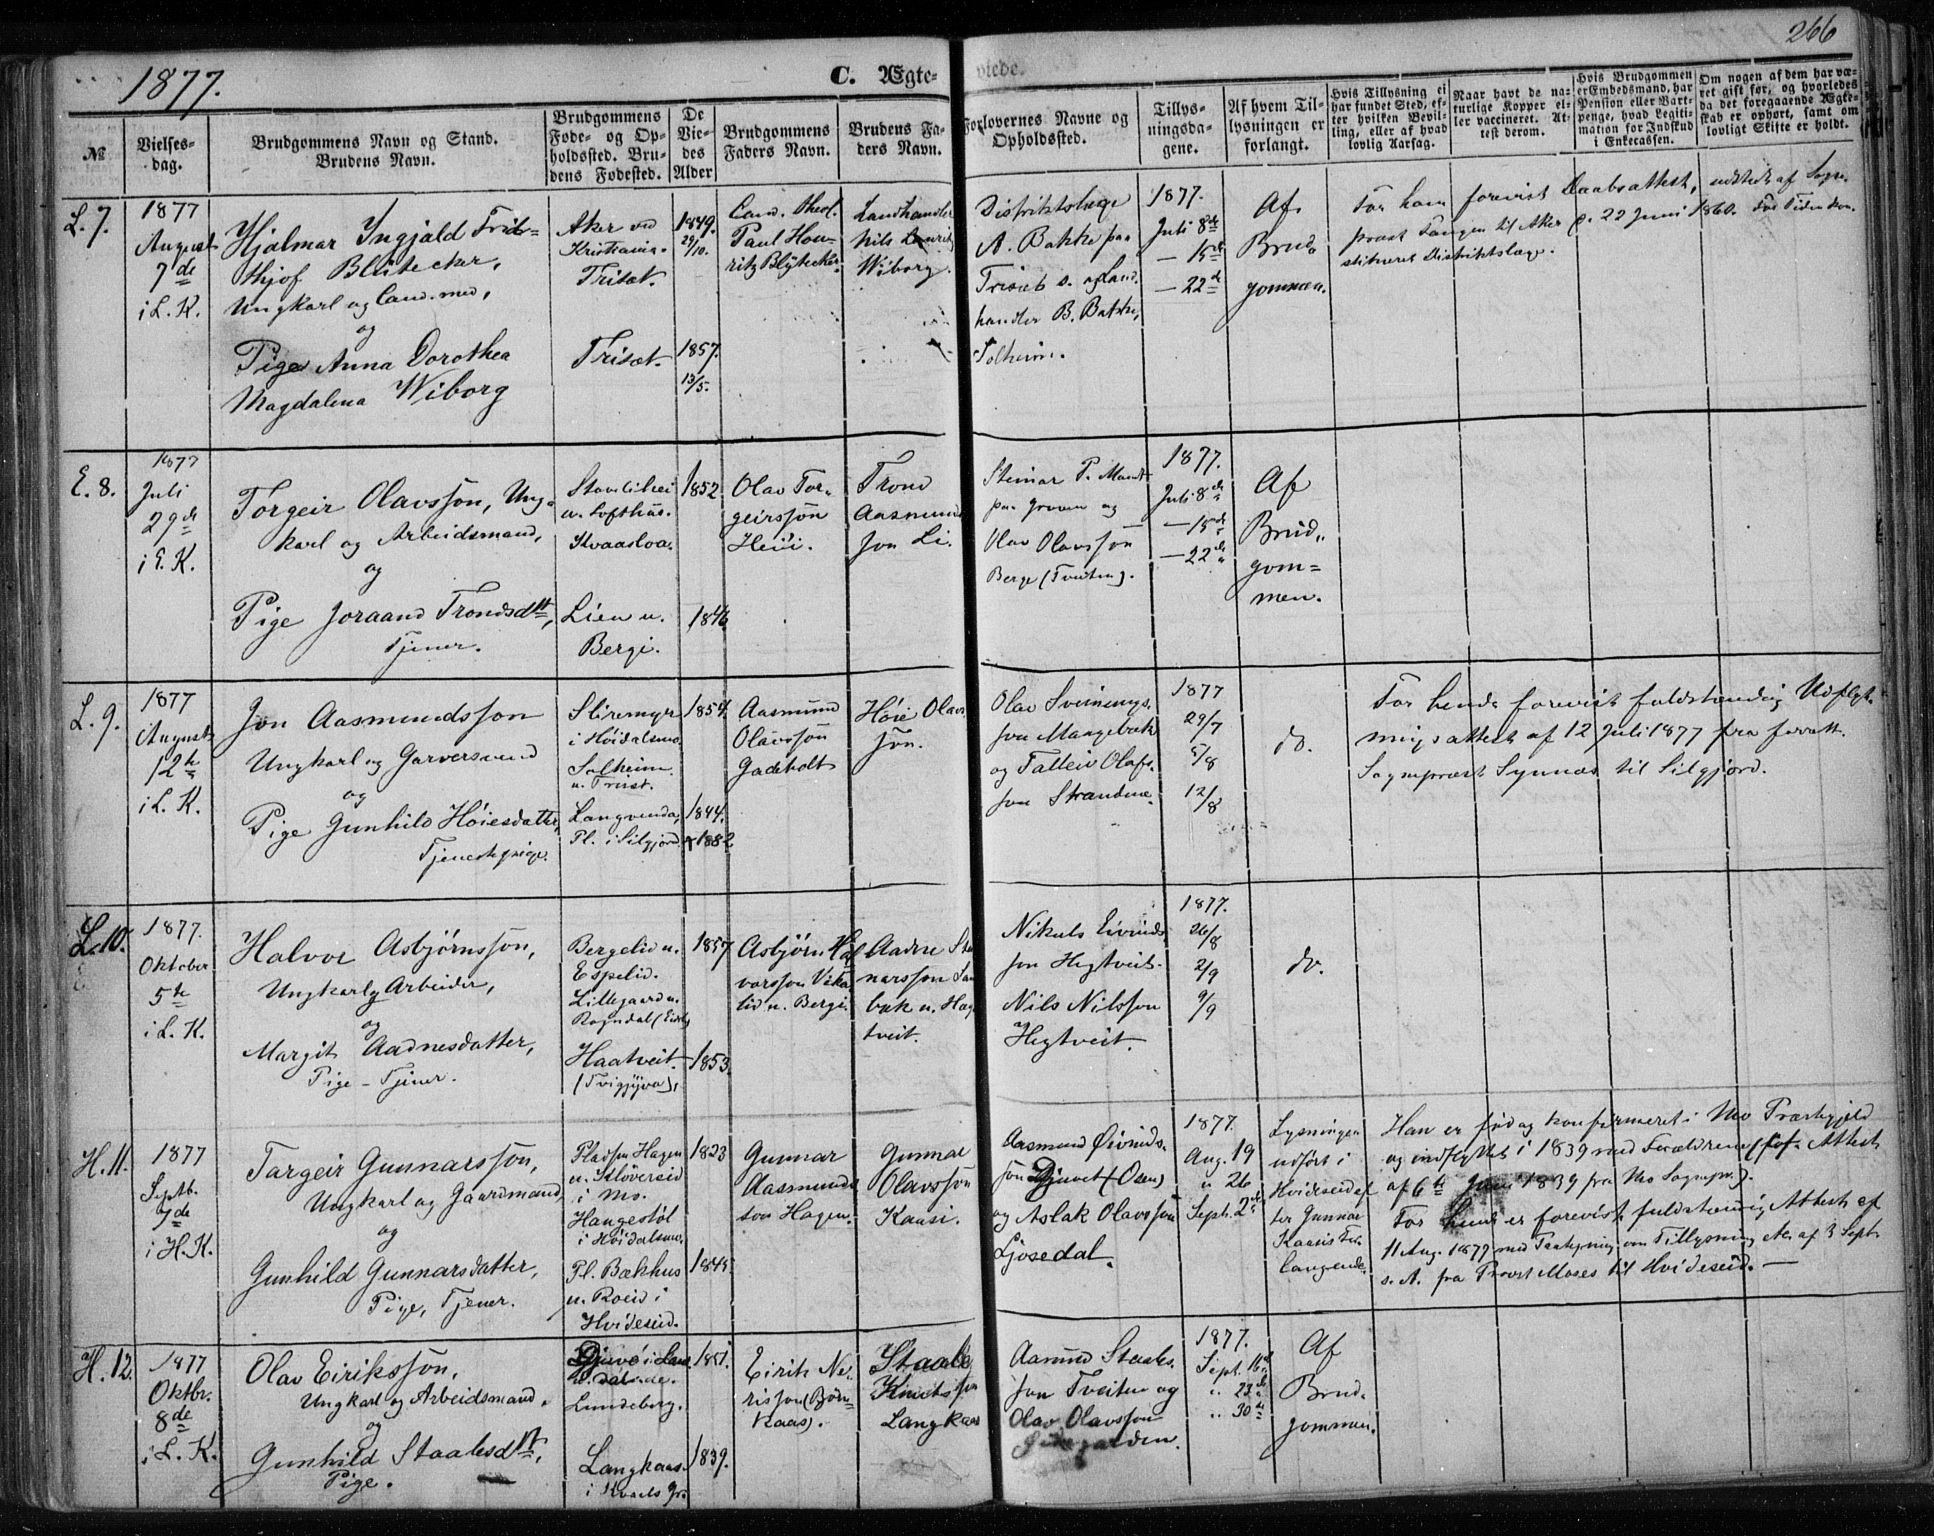 1877.
C. Ægte-
viede.
266
№
Vielses-
dag.
Brudgommens Navn og Stand.
Brudens Navn.
Brudgommens
Føde- og Op-
holdssted. Bru-
dens Fødested.
De
Vie-
des
Alder
Brudgommens
Faders Navn.
Brudens Fa-
ders Navn.
Forlovernes Navne og
Opholdssted.
Tillys-
ningsda-
gene.
Af hvem Til-
lysningen er
forlangt.
Hvis Tillysning ei
har fundet Sted, ef-
ter hvilken Bevil-
ling, eller af hvad
lovlig Aarsag.
Naar havt de na-
turlige Kopper el-
ler vaccineret. At-
test derom.
Hvis Brudgommen
er Embedsmand, har
Pension eller Vart-
penge, hvad Legiti-
mation for Indskud
i Enkecassen.
Om nogen af dem har væ-
ret gift før, og hvorledes
da det foregaaende Ægte-
skab er ophørt, samt om
lovligt Skifte er holdt.
L. 7.
1877
August
7de
i L. K.
Hjalmar Ingjald Frit-
thjof
Ungkarl og Cand. med,
og
Pige Anna Dorothea
Magdalena Wiborg
Aker ved
Kristiania.
Triset.
Triset.
1849.
29/10.
1857.
13/5.
Cand. theol.
Paul Hou-
ritz
Landhandler
Nils
Wiborg.
Distriktslæge
A. Bakke paa
Triset s. og Land-
handler B. Bakke,
Solheim.
1877.
Juli 8de
— 15de
— 22de
Af
Brud-
gommen.
For ham forevist Daabsattest, udstedt af Sogne-
prest til Aker d. 22 Juni 1860. For Tiden kon-
stitueret Distriktslæge.
E. 8.
1877
Juli
29de
i E. K.
Torgeir Olavssøn, Ung-
karl og Arbeidsmand,
og
Pige Joraand Trondsdtt,
Tjener.
u. Lofthus.
Lien u.
Bergi.
1852
1846
Olav Tor-
geirssøn
Heii.
Trond
Aasmund-
søn Li.
Steinar P.
paa og
Olav Olavssøn
Berge (Tveiten).
1877.
Juli 8de
— 15de
— 22de
Af
Brud-
gom=
men.
L. 9.
1877
August
12te
i L. K.
Jon Aasmundssøn
Ungkarl og Garversvend
og
Pige Gunhild Høiesdatter,
Tjenestepige.
Sliremyr
i Høidalsmo.
Solheim
u. Triset.
Langvenda,
Pl. i Silgjord
1854.
1844.
1882
Aasmund
Olavssøn
Høie Olavs-
søn.
Olav
søn
og Talleiv Olafs-
søn
1877
29/7
5/8
12/8
do.
For hende forevist fuldstændig Udflyt-
ningsattest af 12 Juli 1877 fra forrett.
Sogneprest Synnes til Silgjord.
L. 10.
1877.
Oktober
5te
i L. K.
Halvor Asbjørnssøn,
Ungkarl og Arbeider,
og
Margit Aadnesdatter,
Pige - Tjener.
Bergelid u.
Espelid.
Lillegaard u.
Haatveit
1857
1853.
Asbjørn Hal-
vorssøn
lid u. Bergi.
Aadne
tveit.
Nikuls Eivinds-
søn Hegtveit.
Nils Nilssøn
Hegtveit.
1877.
26/8
2/9
9/9
do.
H. 11.
1877
Septb.
7de
i H. K.
Targeir Gunnarssøn,
Ungkarl og Gaardmand
og
Gunhild Gunnarsdatter,
Pige, Tjener.
Pladsen Hagen
u.
i Mo.
Haugestøl
i Høidalsmo.
Pl. Bækhus
u. Roeid i
Hvideseid.
1823
1845.
Gunnar
Aasmunds-
søn Hagen.
Gunnar
Olavssøn
Kaasi.
Aasmund Øivinds-
søn Djuvet (Osen)
og Aslak Olavssøn
Ljosedal.
1877.
Aug. 19
" 26
Sept. 2de
Lysningen
udført i
Hvideseid ef-
ter Gunnar
Kaasis For-
langende.
Han er fød og konfirmeret i Mo Præstegjeld
og indflyttet i 1839 med Forældrene (cf. Attest
af 6te Juni 1839 fra Mo Sognepr.).
For hende er forevist fuldstændig Attest af
11 Aug. 1877 med Paategning om Tillysning etc. af 3 Sept
s. A. fra Provst Moses til Hvideseid. —
H. 12.
1877
Oktbr.
8de
i L. K.
Olav Eirikssøn,
Ungkarl og Arbeidsmand,
og
Gunhild Staalesdtt,
Pige.
Lundeberg.
Langkaas
1851.
1839.
Eirik
Kaas).
Staale
Knutssøn
Langkaas
Aamund Staales-
søn Tveiten og
Olav Olavssøn
1877.
Sept. 16de
" 23de
" 30te
Af
Brud-
gommen.